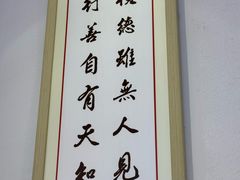 德雖無人見
行善自有天知